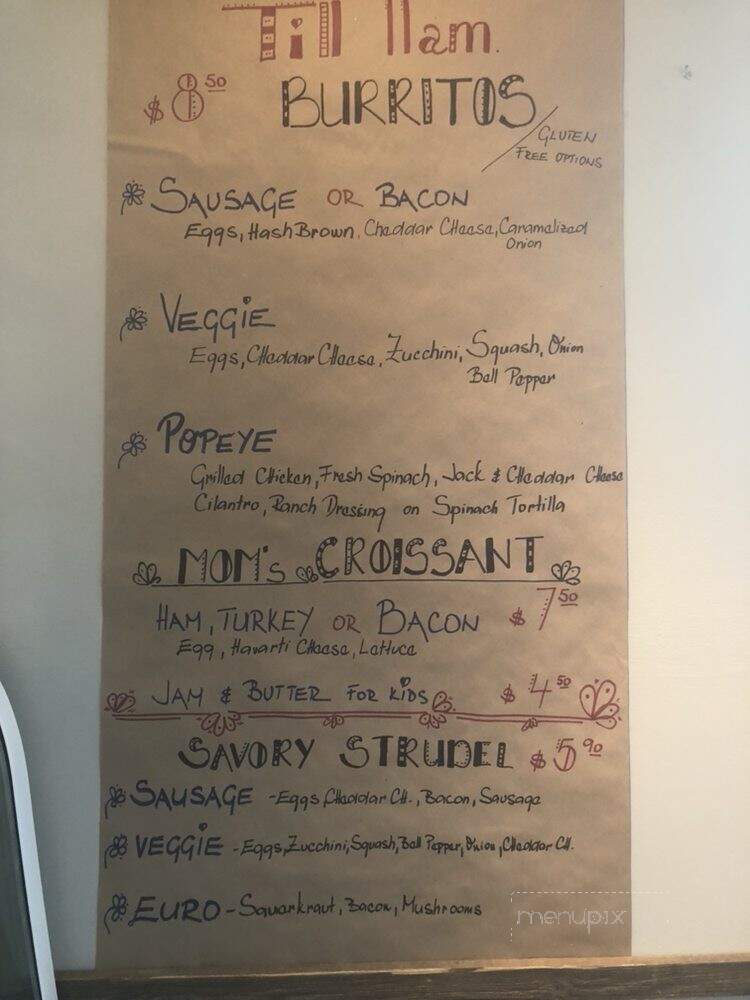 Till 11am.
$8.50 BURRITOS
GLUTEN
FREE OPTIONS
SAUSAGE OR BACON
Eggs, Hash Brown, Cheddar Cheese, Caramelized
Onion
VEGGIE
Eggs, Cheddar Cheese, Zucchini, Squash, Onion
Bell Pepper
POPEYE
Grilled Chicken, Fresh Spinach, Jack & Cheddar Cheese
Cilantro, Ranch Dressing on Spinach Tortilla
MOM'S CROISSANT
HAM, TURKEY OR BACON $7.50
Egg, Havarti Cheese, Lettuce
JAM & BUTTER FOR KIDS $4.50
SAVORY STRUDEL $5.90
SAUSAGE - Eggs, Cheddar CH., Bacon, Sausage
VEGGIE - Eggs, Zucchini, Squash, Bell Pepper, Onion, Cheddar CH.
EURO - Sauerkraut, Bacon, Mushrooms
menupix